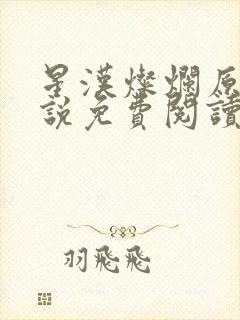 星漢燦爛原
說免費閱讀
羽飛飛